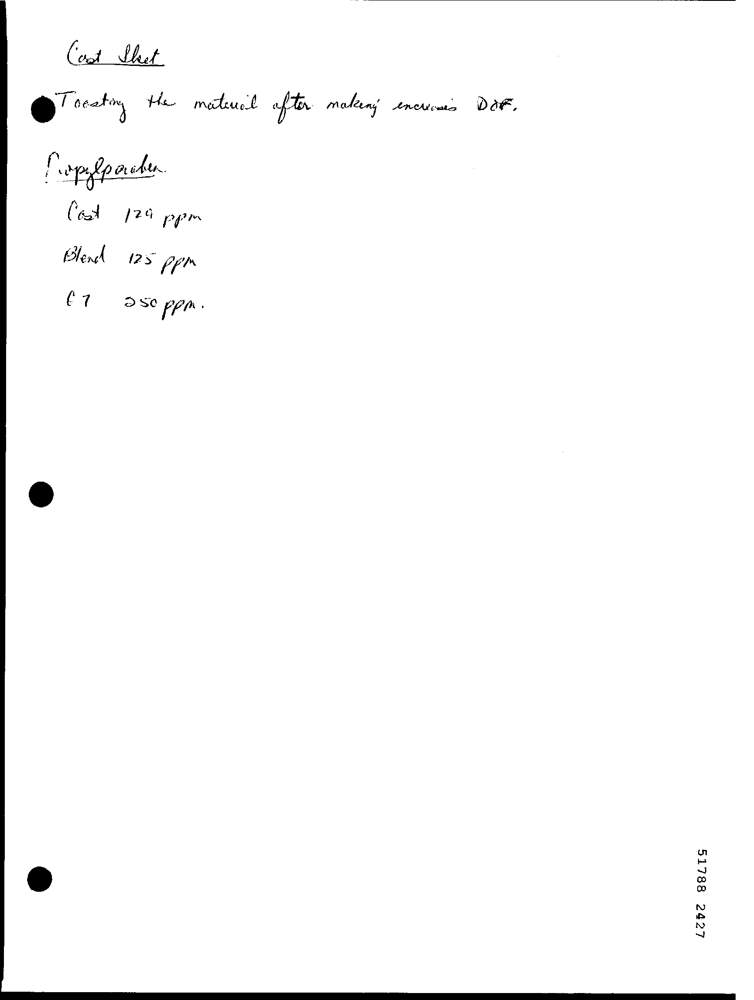 Cast Sheet
Toasting the material after making increases DOF.
Propylparaben
Cast 129 ppm
Blend 125 ppm
250 ppm.
51788 2427